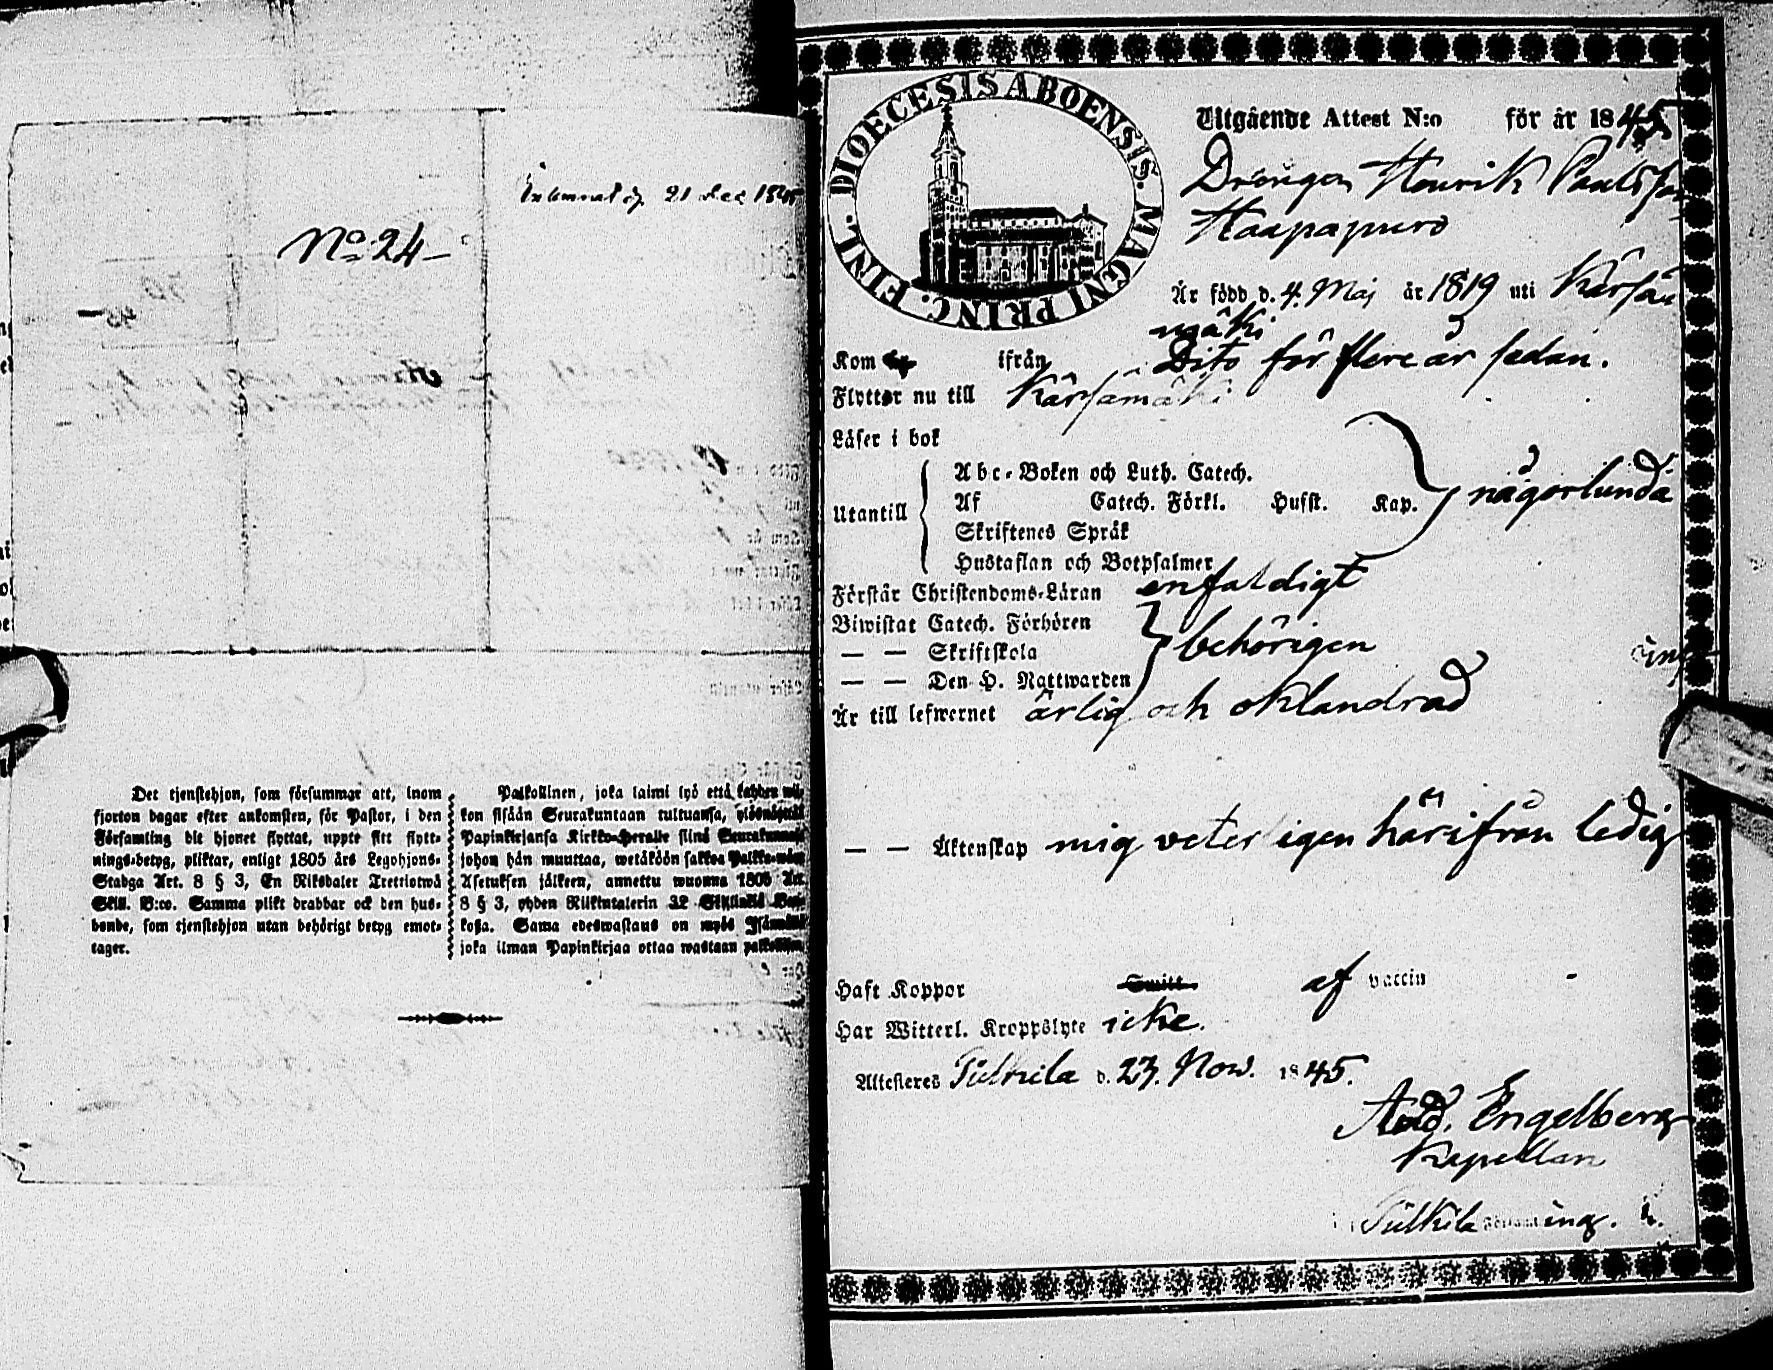 Inlemnat d. 21 Dec 1845
No 24
Det tjenstehjon, som försummar att, inom
fjorton dagar efter ankomsten, för Pastor, i den
Församling dit hjonet flyttat, uppte sitt flytt-
nings-betyg, pliktar, enligt 1805 års Legohjons-
Stadga Art. 8 § 3, En Riksdaler Tretriotwå
Skill. B:co. Samma plikt drabbar ock den hus-
bonde, som tjenstehjon utan behörigt betyg emot-
tager.
Palkollinen, joka laimi lyö että, kahden wii-
kon sisään Seurakuntaan tultuansa, ylösnäyttä
Papinkirjansa Kirkko-Herralle siinä Seurakunnassa
johon hän muuttaa, wetäköön sakkoa Palkka-wäen
Asetuksen jälkeen, annettu wuonna 1805 Art.
8 § 3, yhden Riikintalerin 32 Skillinkiä Ban-
kossa. Sama edeswastaus on myös Isännällä
joka ilman Papinkirjaa ottaa wastaan palkollisen
DIOECESIS ABOENSIS. MAGNI PRINC. FINL.
Utgående Attest N:o för år 1845
Drängen Henrik Paulsson
Haapapuro
Är född d. 4. Maj år 1819 uti Kärsä-
mäki
Kom ifrån Dito för flere år sedan.
Flyttar nu till Kärsämäki
Läser i bok
Utantill
Abc-Boken och Luth. Catech.
Af Catech. Förkl. Husst. Kap. någorlunda
Skriftenes Språk
Hustaflan och Botpsalmer
Förstår Christendoms-Läran enfaldigt
Biwistat Catech. Förhören
— — Skriftskola behörigen
— — Den H. Nattwarden
Är till lefwernet ärlig och oklandrad
— — Äktenskap mig veterligen härifrån ledig
Haft Koppor af vaccin
Har Witterl. Kroppslyte icke.
Attesteres Pulkila d. 23. Nov. 1845.
And. Engelberg
Kapellan
Pulkila